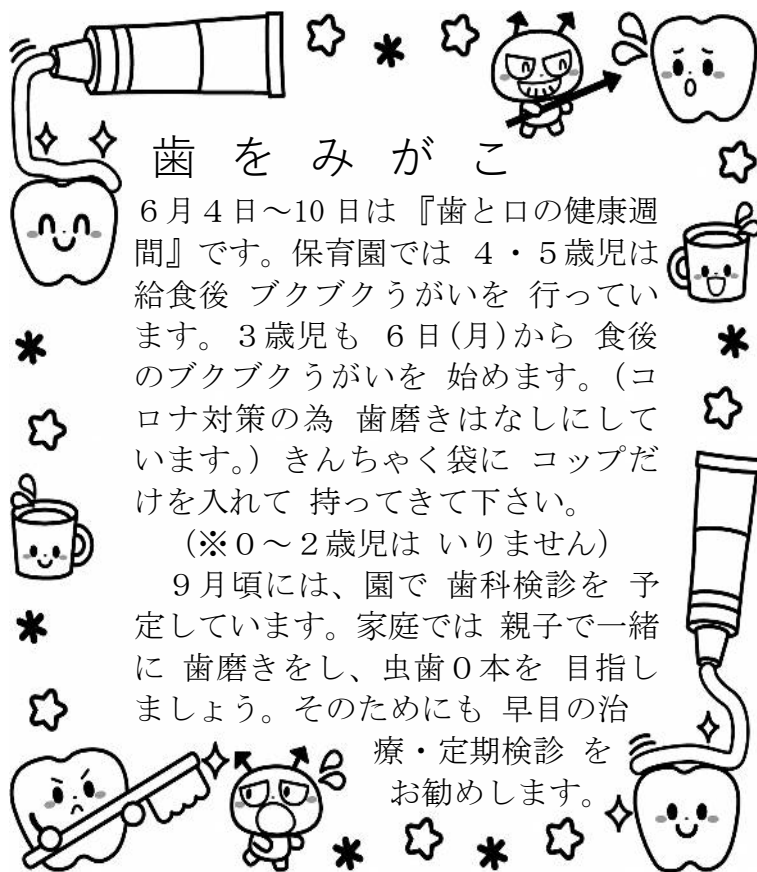 歯 を み が こ
６月４日～10 日は『歯と口の健康週
間』です。保育園では ４・５歳児は
給食後 ブクブクうがいを 行ってい
ます。３歳児も ６日(月)から 食後
のブクブクうがいを 始めます。（コ
ロナ対策の為 歯磨きはなしにして
います。）きんちゃく袋に コップだ
けを入れて 持ってきて下さい。
（※０～２歳児は いりません）
９月頃には、園で 歯科検診を 予
定しています。家庭では 親子で一緒
に 歯磨きをし、虫歯０本を 目指し
ましょう。そのためにも 早目の治
療・定期検診 を
お勧めします。